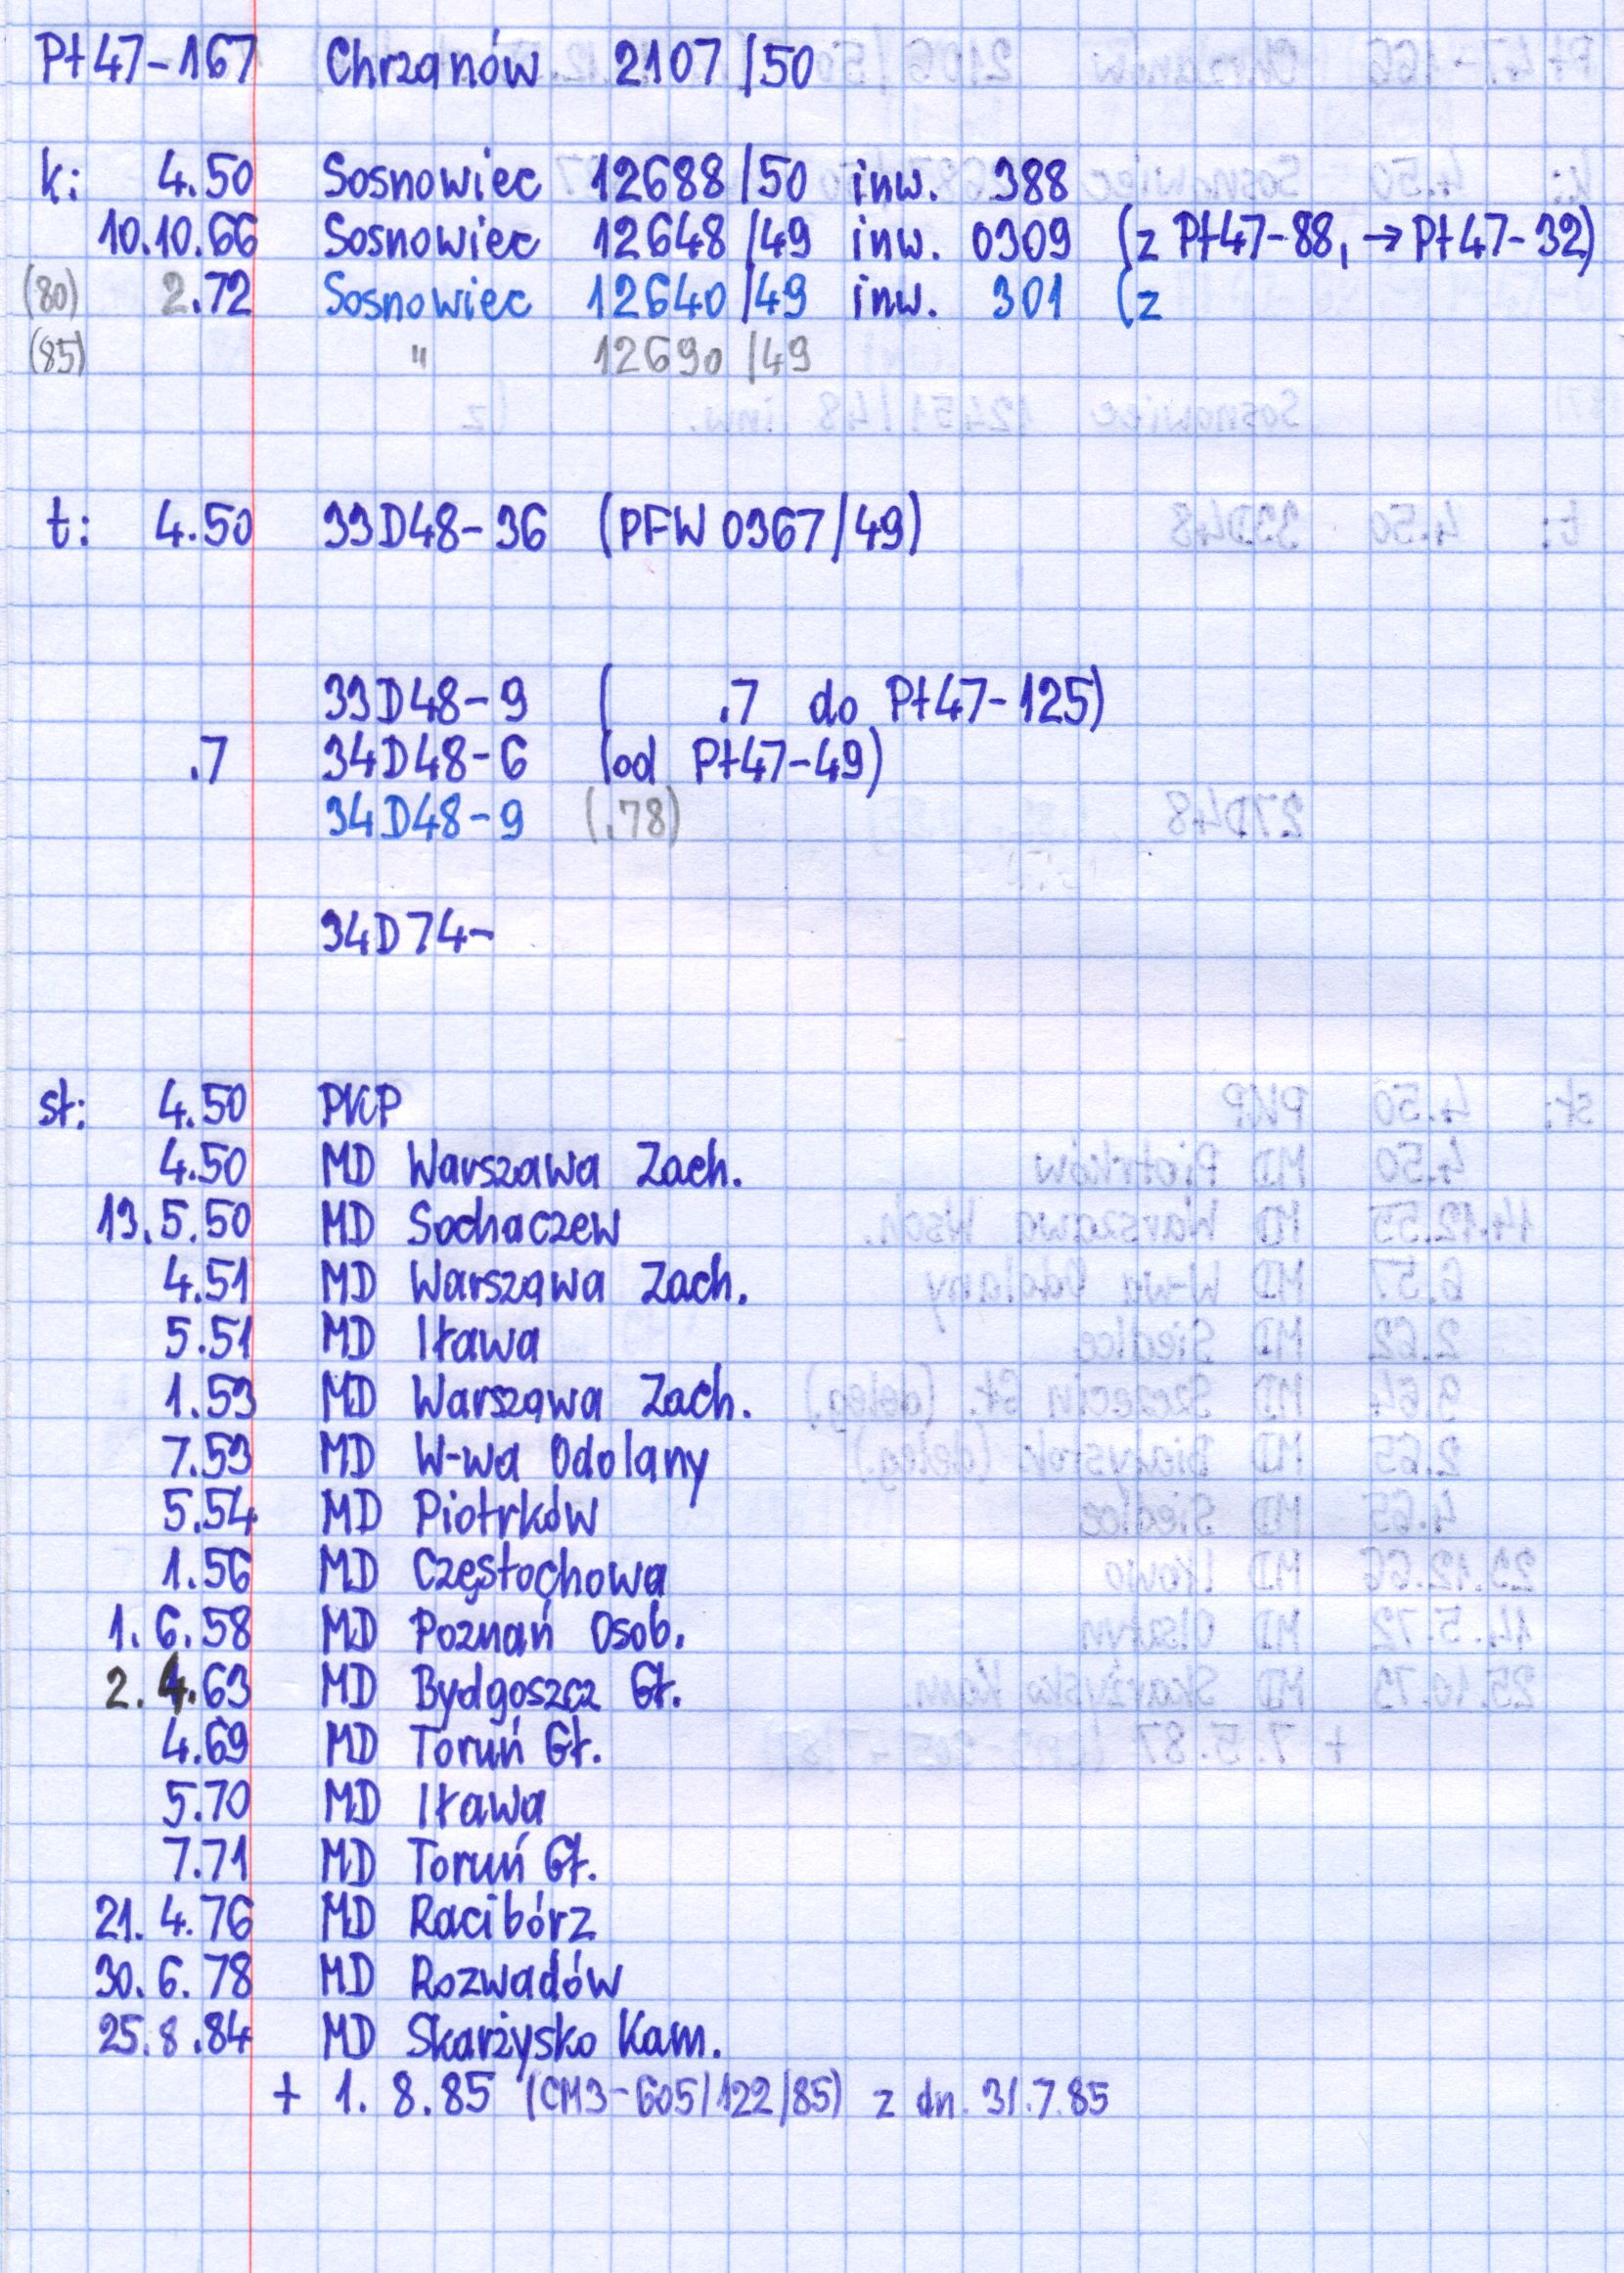 Pt47-167 Chrzanów 2107/50
k: 4.50 Sosnowiec 12688/50 inw. 388
10.10.66 Sosnowiec 12648/49 inw. 0309 (z Pt47-88, → Pt47-32)
(80) 2.72 Sosnowiec 12640/49 inw. 301 (z
(85) " 12690/49
t: 4.50 33D48-36 (PFW 0367/49)
33D48-9 ( .7 do Pt47-125)
.7 34D48-6 (od Pt47-49)
34D48-9 (.78)
34D74-
st: 4.50 PKP
4.50 MD Warszawa Zach.
13.5.50 MD Sochaczew
4.51 MD Warszawa Zach.
5.51 MD Iława
1.53 MD Warszawa Zach.
7.53 MD W-wa Odolany
5.54 MD Piotrków
1.56 MD Częstochowa
1.6.58 MD Poznań Osob.
2.4.63 MD Bydgoszcz Gł.
4.69 MD Toruń Gł.
5.70 MD Iława
7.71 MD Toruń Gł.
21.4.76 MD Racibórz
30.6.78 MD Rozwadów
25.8.84 MD Skarżysko Kam.
+ 1.8.85 (CM3-605/122/85) z dn. 31.7.85